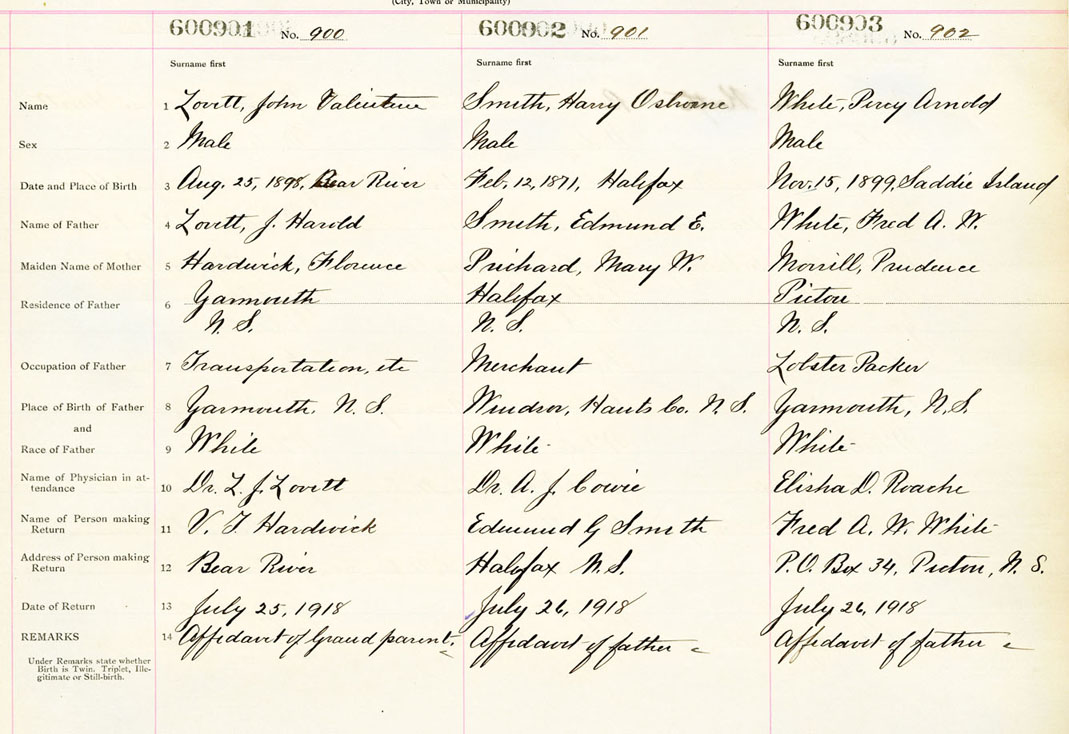 (City, Town or Municipality)
600901 No. 900 600902 No. 901 600903 No. 902
Surname first Surname first Surname first
Name 1 Lovitt, John Valentine Smith, Harry Osborne White, Percy Arnold
Sex 2 Male Male Male
Date and Place of Birth 3 Aug. 25, 1898, Bear River Feb. 12, 1871, Halifax Nov. 15, 1899, Saddie Island
Name of Father 4 Lovitt, J. Harold Smith, Edmund E. White, Fred A. W.
Maiden Name of Mother 5 Hardwick, Florence Prichard, Mary W. Morrill, Prudence
Residence of Father 6 Yarmouth Halifax Pictou
N. S. N. S. N. S.
Occupation of Father 7 Transportation, etc Merchant Lobster Packer
Place of Birth of Father 8 Yarmouth. N. S. Windsor, Hants Co. N. S. Yarmouth, N.S.
and
Race of Father 9 White White White
Name of Physician in at-
tendance 10 Dr. L. J. Lovitt Dr. A. J. Cowie Elisha D. Roache
Name of Person making
Return 11 V. T. Hardwick Edmund G Smith Fred A. W. White
Address of Person making
Return 12 Bear River Halifax N.S. P.O. Box 34, Pictou, N. S.
Date of Return 13 July 25, 1918 July 26, 1918 July 26, 1918
REMARKS 14 Affidavit of Grand parent. Affidavit of father Affidavit of father
Under Remarks state whether
Birth is Twin. Triplet, Ille-
gitimate or Still-birth.